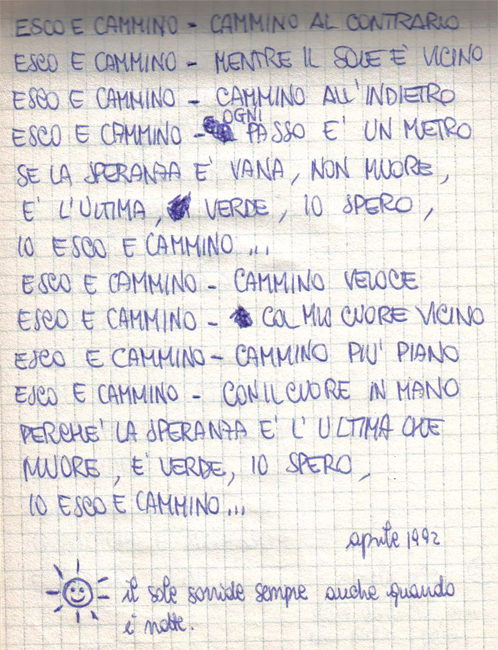 ESCO E CAMMINO - CAMMINO AL CONTRARIO
ESCO E CAMMINO - MENTRE IL SOLE E' VICINO
ESCO E CAMMINO - CAMMINO ALL'INDIETRO
ESCO E CAMMINO - OGNI PASSO E' UN METRO
SE LA SPERANZA E' VANA, NON MUORE,
E' L'ULTIMA, VERDE, IO SPERO,
IO ESCO E CAMMINO...
ESCO E CAMMINO - CAMMINO VELOCE
ESCO E CAMMINO - COL MIO CUORE VICINO
ESCO E CAMMINO - CAMMINO PIU' PIANO
ESCO E CAMMINO - CON IL CUORE IN MANO
PERCHE' LA SPERANZA E' L'ULTIMA CHE
MUORE, E' VERDE, IO SPERO,
IO ESCO E CAMMINO...
aprile 1992
il sole sorride sempre anche quando
e' notte.